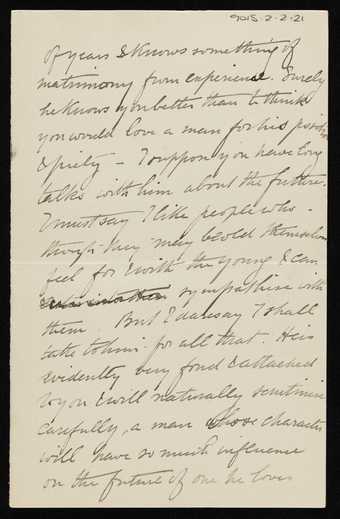 9015.2.2.21
of years & knows something of
matrimony from experience. Surely
he knows you better than to think
you would love a man for his position
& piety – I suppose you have long
talks with him about the future.
I must say I like people who –
though they may be old themselves
feel for & with the young & can
sympathise with
them. But I daresay I shall
take to him for all that. He is
evidently very fond & attached
to you & will naturally scrutinise
carefully, a man whose character
will have so much influence
on the future of one he loves